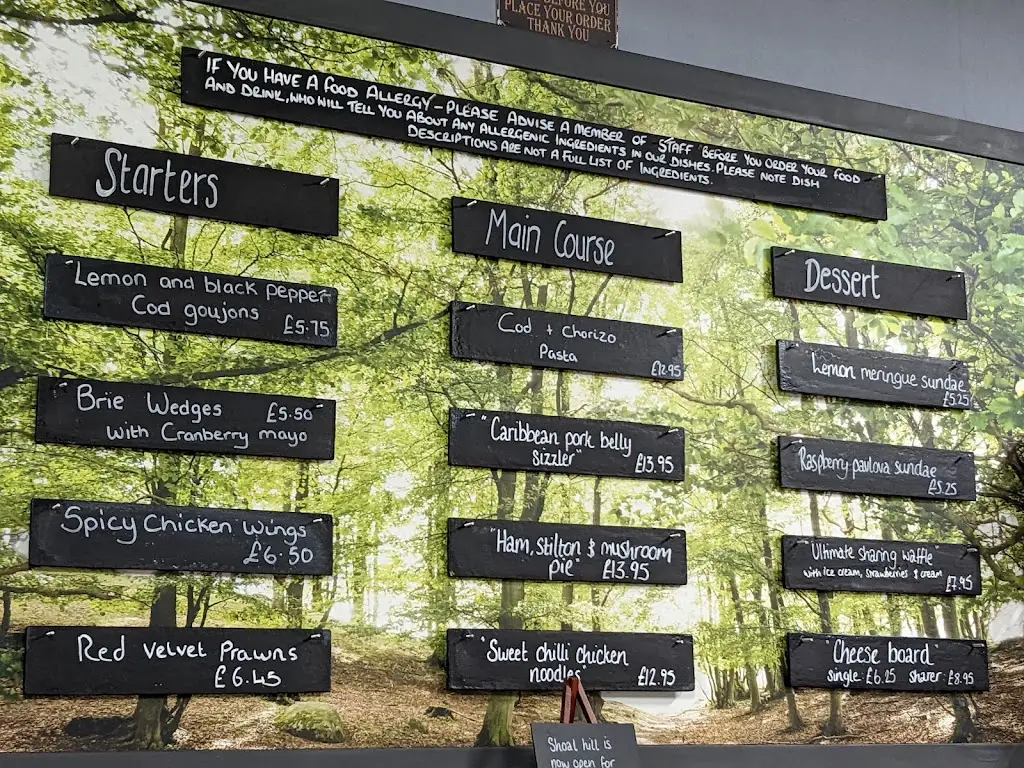 BEFORE YOU
PLACE YOUR ORDER
THANK YOU
IF YOU HAVE A FOOD ALLERGY - PLEASE ADVISE A MEMBER OF STAFF BEFORE YOU ORDER YOUR FOOD
AND DRINK, WHO WILL TELL YOU ABOUT ANY ALLERGENIC INGREDIENTS IN OUR DISHES. PLEASE NOTE DISH
DESCRIPTIONS ARE NOT A FULL LIST OF INGREDIENTS.
Starters
Lemon and black pepper
Cod goujons £5.75
Brie Wedges £5.50
with Cranberry mayo
Spicy Chicken Wings
£6.50
Red Velvet Prawns
£6.45
Main Course
Cod + Chorizo
Pasta £12.95
"Caribbean pork belly
Sizzler" £13.95
"Ham, stilton & mushroom
pie" £13.95
"Sweet chilli chicken
noodles" £12.95
Dessert
Lemon meringue sundae
£5.25
Raspberry pavlova sundae
£5.25
Ultimate sharing waffle
with ice cream, strawberries & cream £7.95
"Cheese board"
single £6.25 sharer £8.95
Shoal hill is
now open for